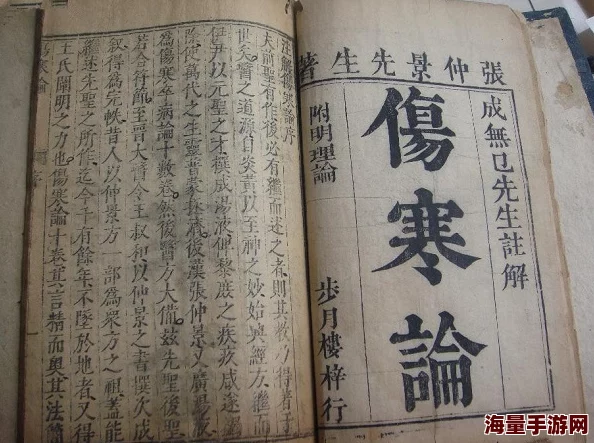 張仲景先生著
成無已先生註解
傷寒論
附明理論
步月樓梓行
註解傷寒論序
夫前聖有作後必有繼而述之者則其教乃得著于
世矣醫之道源自炎黃以至神之妙始興經方繼而
伊尹以元聖之才撰成湯液俾黎庶之疾疢咸遂
除使萬代之生靈普蒙拯濟後漢張仲景又廣湯液
為傷寒卒病論十數卷然後醫方大備茲先聖後聖
若合符節至晉太醫令王叔和以仲景之書撰次成
敘得為完帙昔人以仲景方一部為眾方之祖蓋能
繼述先聖之所作迄今千有餘年不墜於地者又得
王氏闡明之力也傷寒論十卷其言精而奧其法簡
傷寒論 序
海量手游网